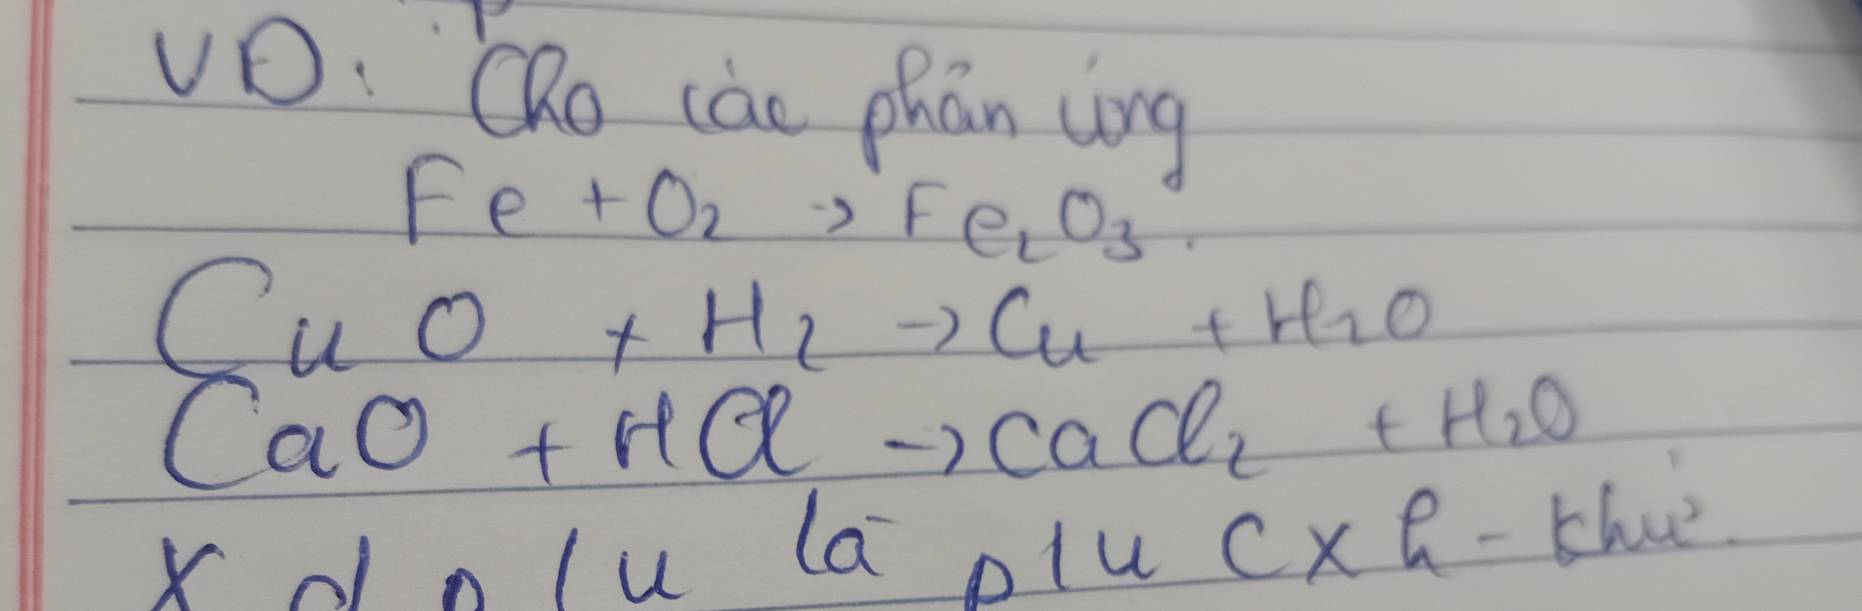 VD: Cho các phản ứng
Fe + O₂ → Fe₂O₃.
CuO + H₂ → Cu + H₂O
CaO + HCl → CaCl₂ + H₂O
X d p/u là p/u Cxh - khử.